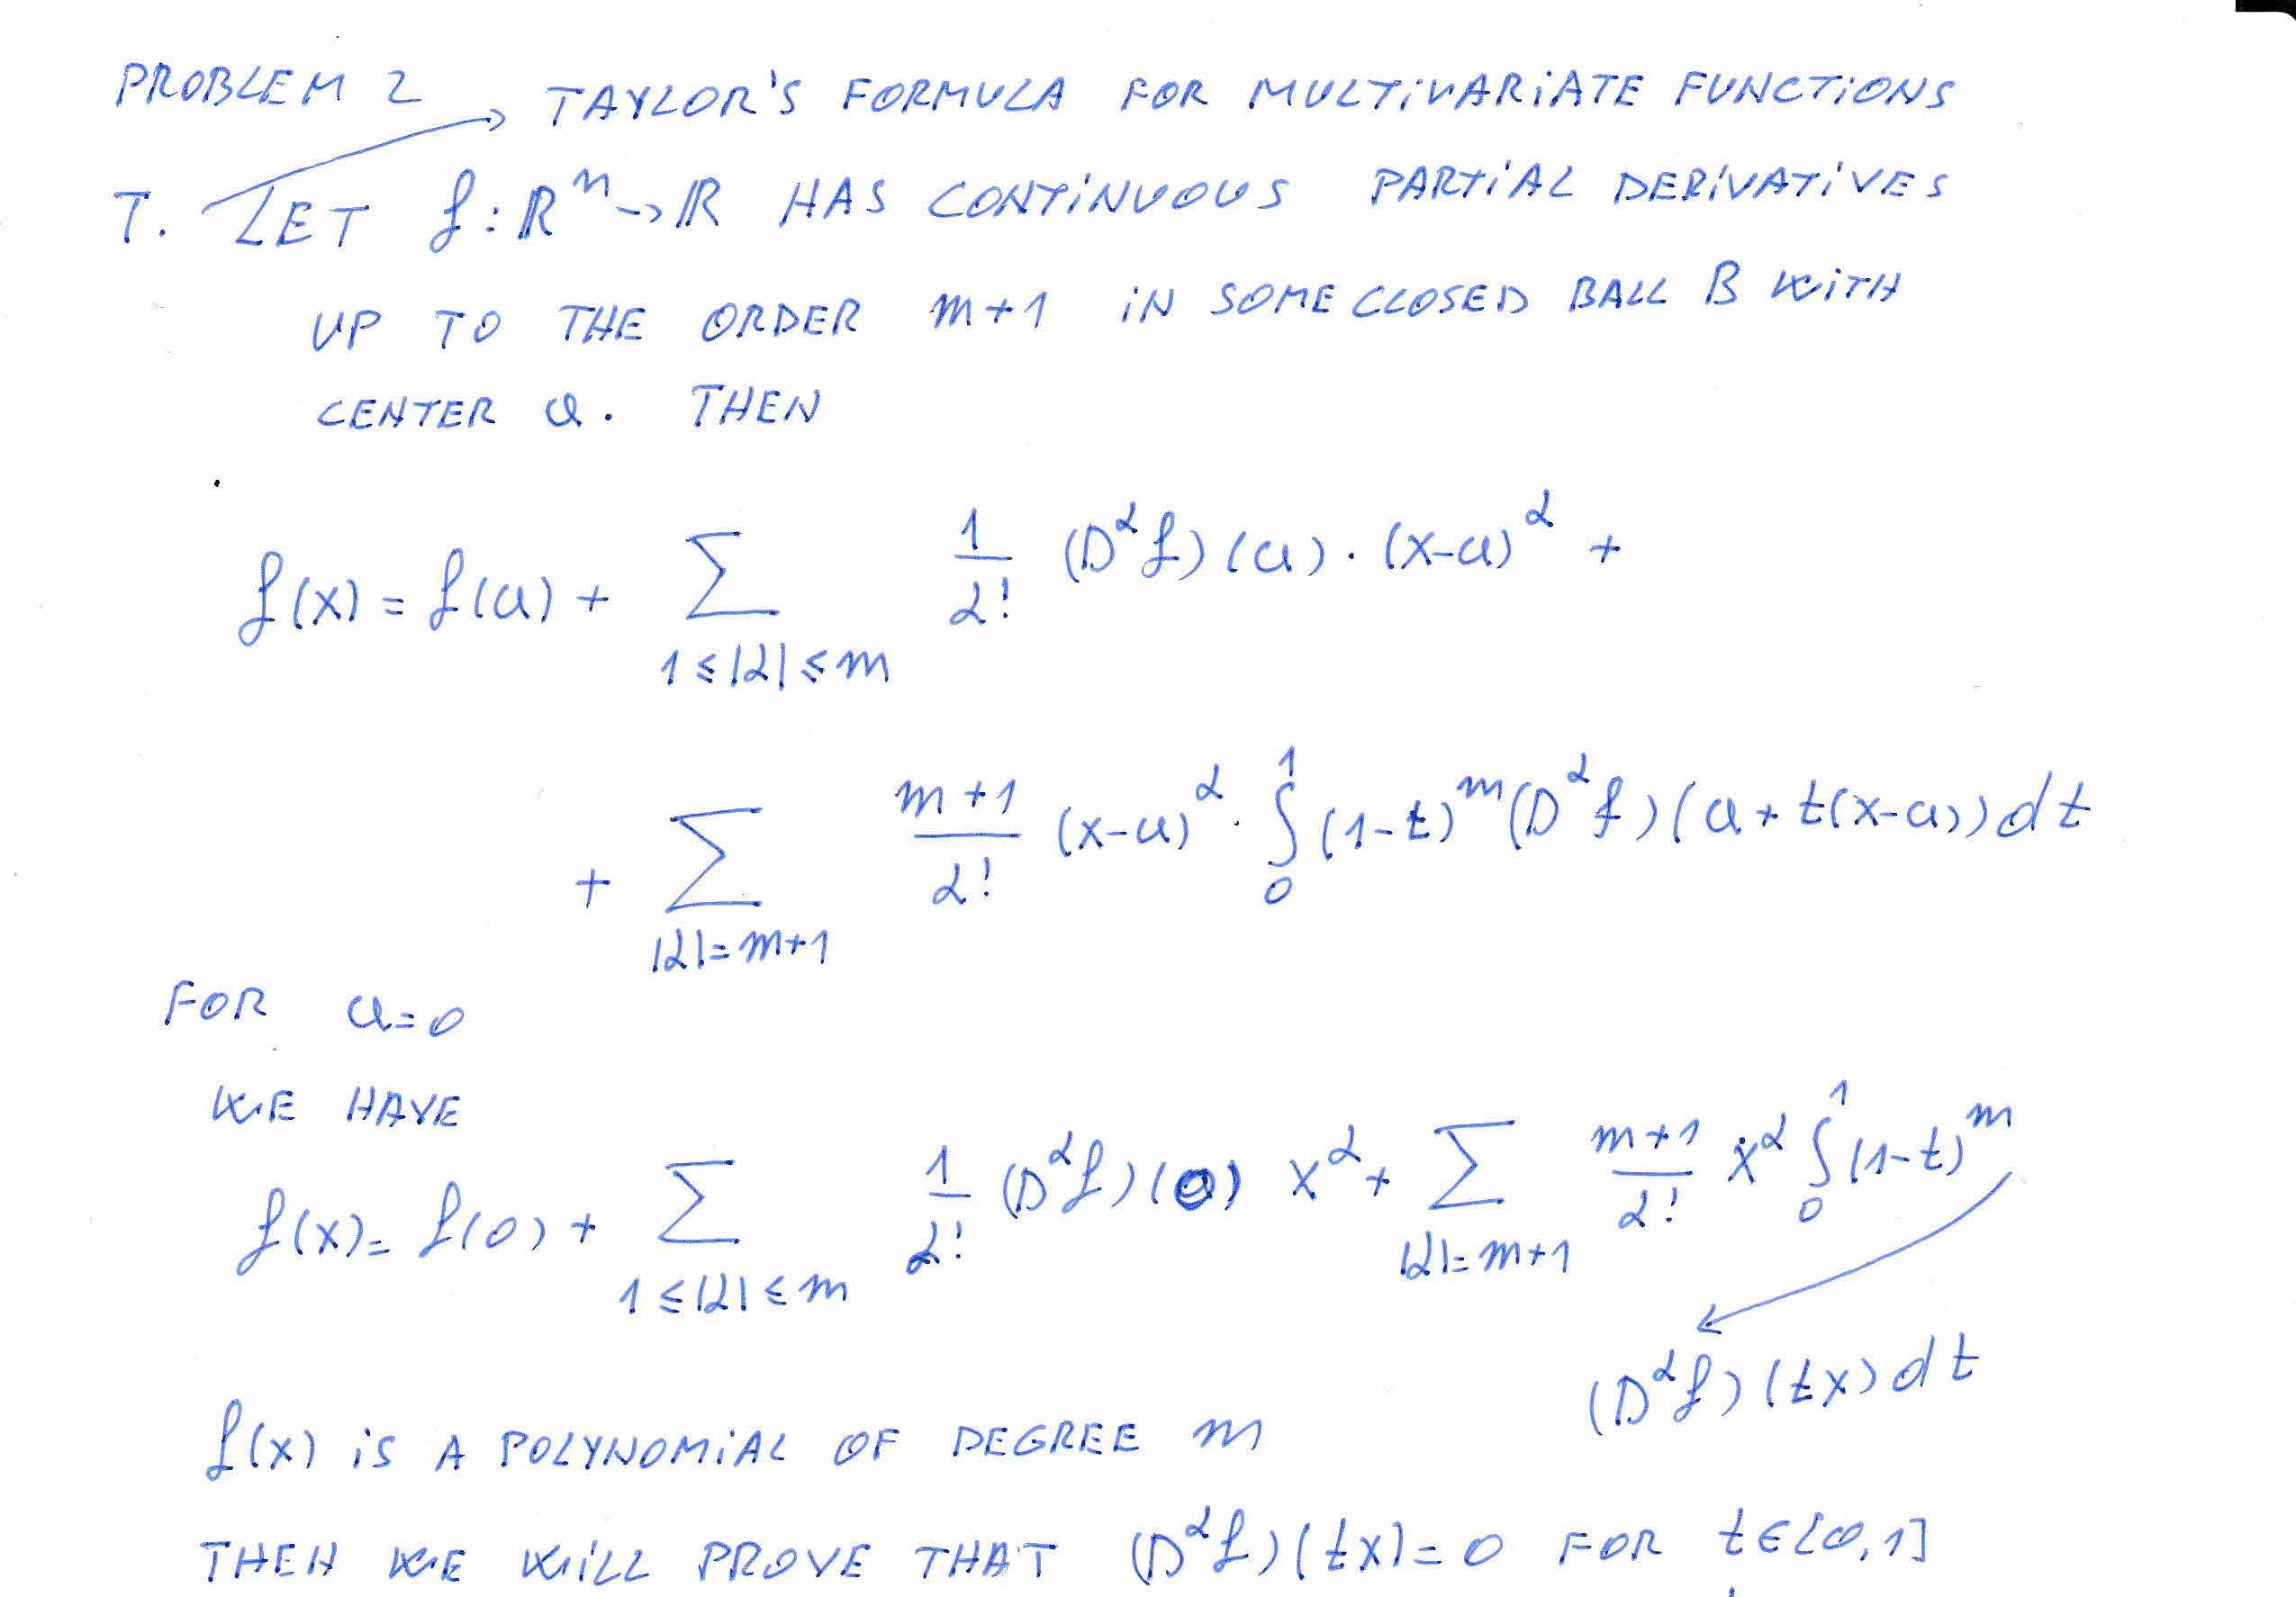 PROBLEM 2
TAYLOR'S FORMULA FOR MULTIVARIATE FUNCTIONS
T. LET f: ℝⁿ → ℝ HAS CONTINUOUS PARTIAL DERIVATIVES
UP TO THE ORDER m+1 IN SOME CLOSED BALL B WITH
CENTER a. THEN
f(x) = f(a) + ∑_{1≤|α|≤m} 1/α! (D^α f)(a) · (x-a)^α +
+ ∑_{|α|=m+1} (m+1)/α! (x-a)^α · ∫₀¹ (1-t)^m (D^α f)(a + t(x-a)) dt
FOR a=0
WE HAVE
f(x) = f(0) + ∑_{1≤|α|≤m} 1/α! (D^α f)(0) x^α + ∑_{|α|=m+1} (m+1)/α! x^α ∫₀¹ (1-t)^m
(D^α f)(tx) dt
f(x) IS A POLYNOMIAL OF DEGREE m
THEN WE WILL PROVE THAT (D^α f)(tx) = 0 FOR t∈[0,1]